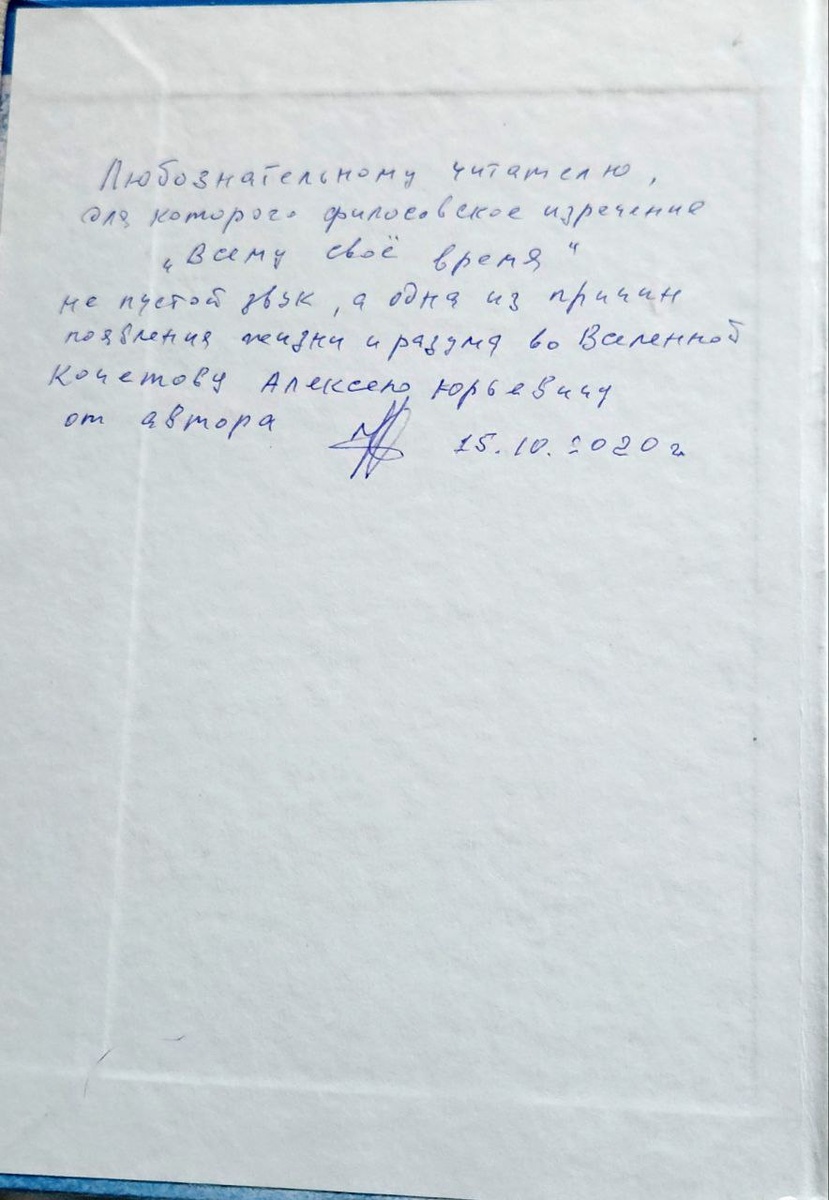 Любознательному читателю,
для которого философское изречение
„Всему своё время"
не пустой звук, а одна из причин
появления жизни и разума во Вселенной
Кочетову Алексею Юрьевичу
от автора 15.10.2020 г.